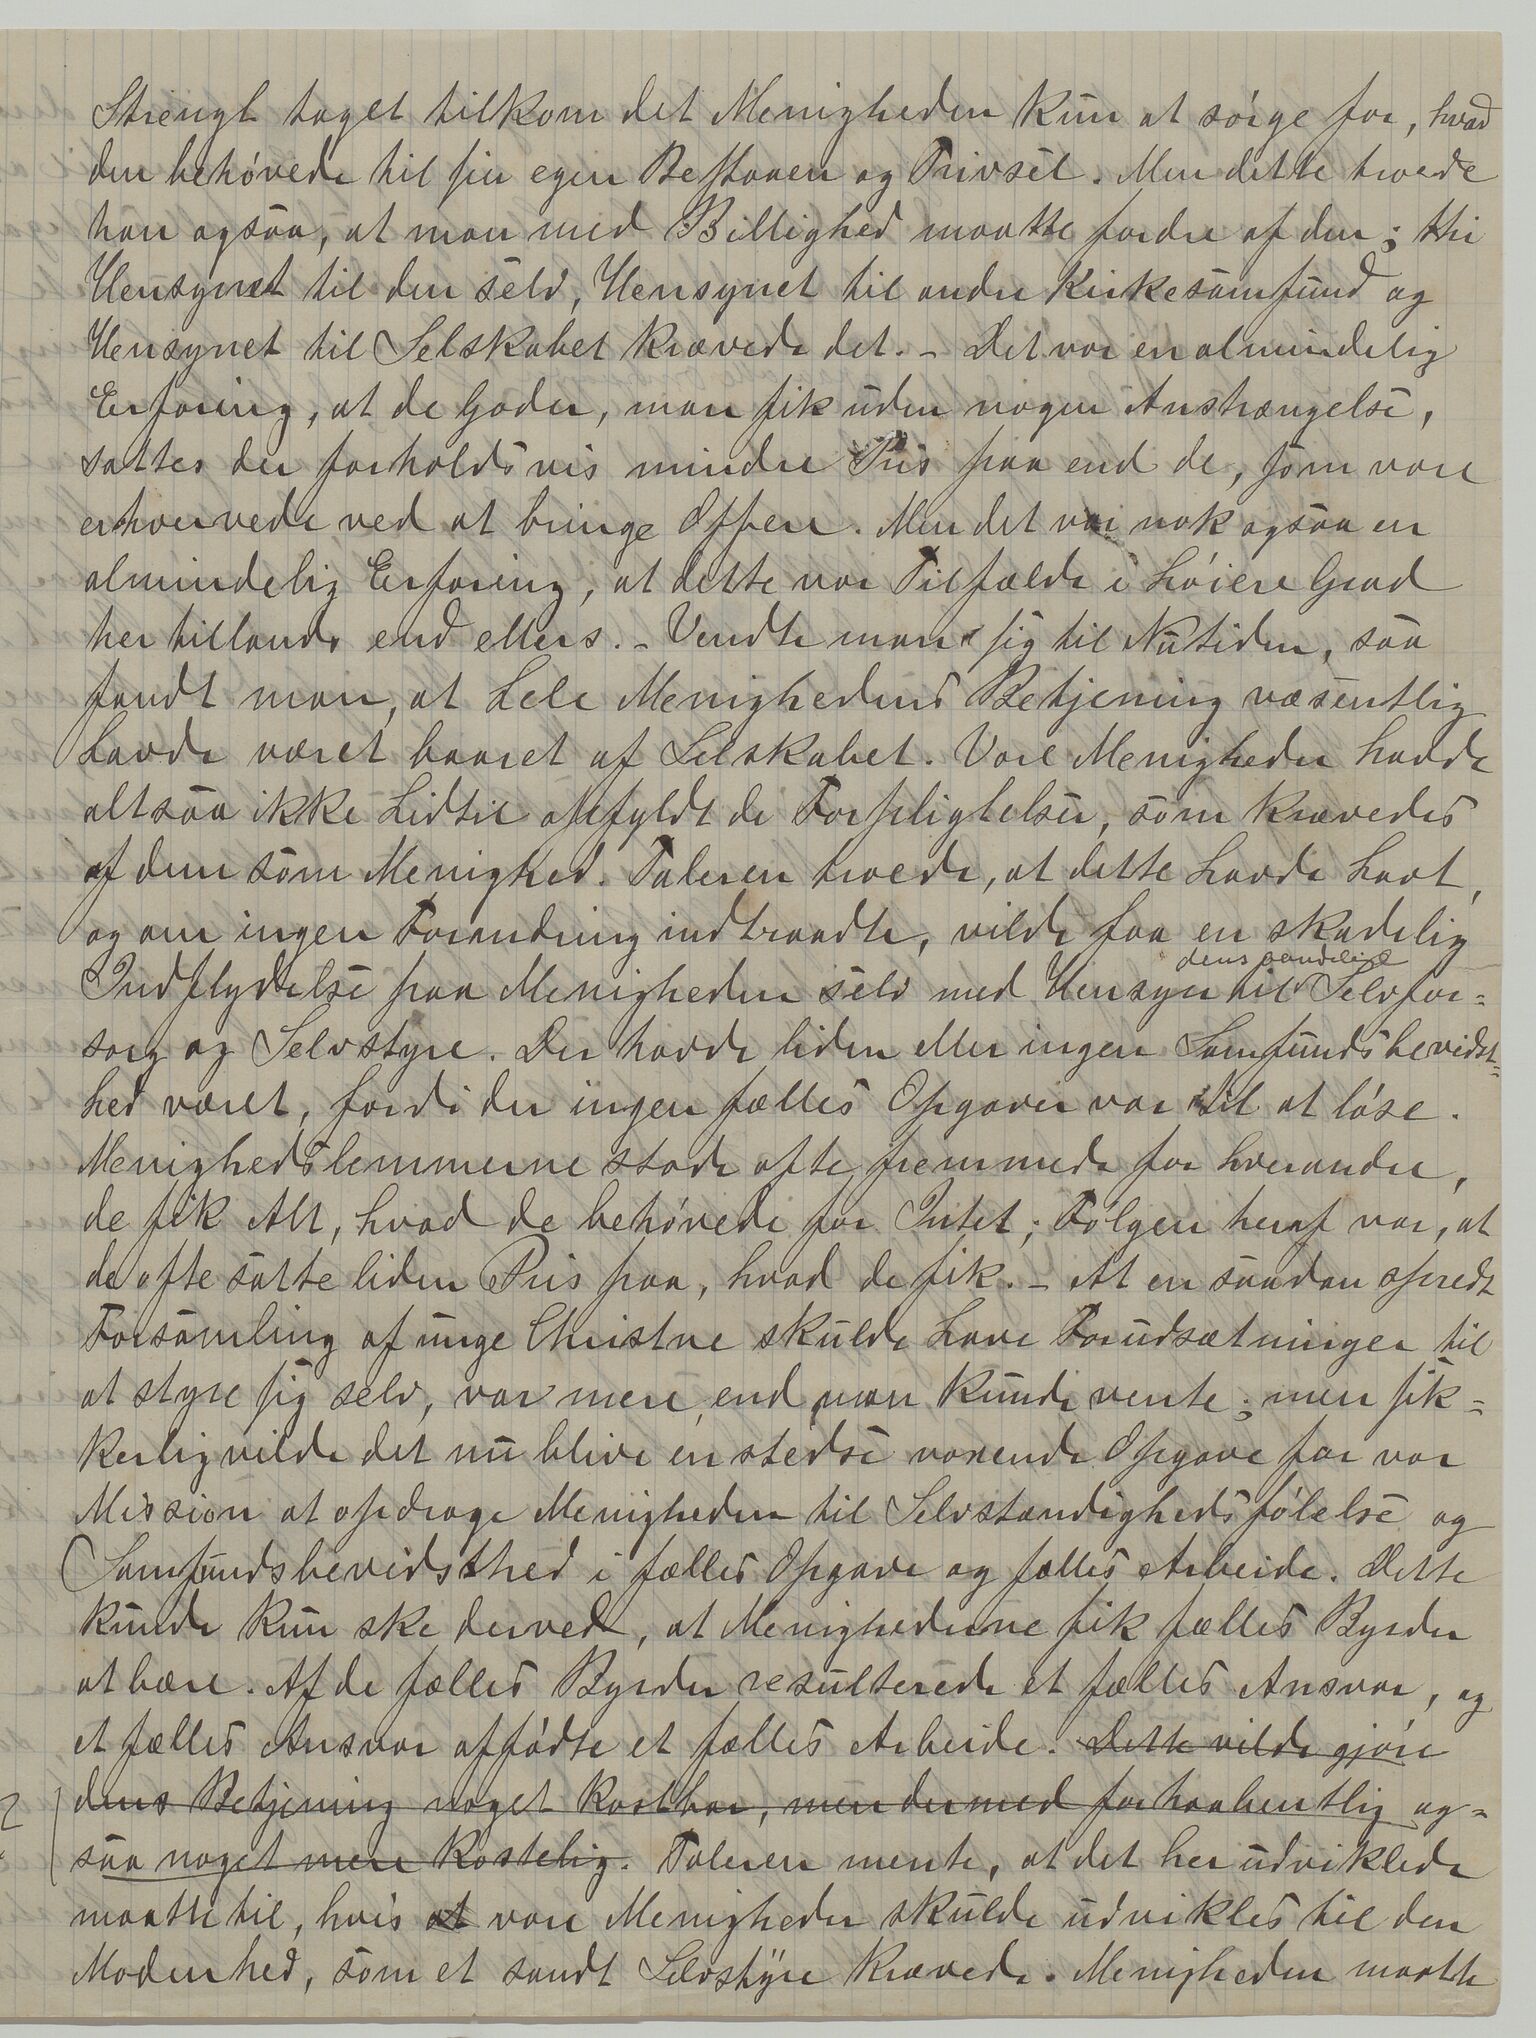 Strengt taget tilkom det Menigheden kun at sørge for, hvad
den behøvede til sin egen Bestaaen og Trivsel. Men dette troede
han ogsaa, at man med Billighed maatte fordre af den; thi
Hensynet til den selv, Hensynet til andre Kirkesamfund og
Hensynet til Selskabet krævede det. – Det var en almindelig
Erfaring, at de Goder, man fik uden nogen Anstrængelse,
sattes der forholdsvis mindre Pris paa end de, som vare
erhvervede ved at bringe Offere. Men det var nok ogsaa en
almindelig Erfaring, at dette var Tilfælde i høiere Grad
her tillands end ellers. – Vendte man sig til Nutiden, saa
fandt man, at hele Menighedens Betjening væsentlig
havde været baaret af Selskabet. Vore Menigheder havde
altsaa ikke hidtil opfyldt de Forpligtelser, som krævedes
af dem som Menighed. Taleren troede, at dette havde havt,
og om ingen Forandring indtraadte, vilde faa en skadelig
Indflydelse paa Menigheden selv med Hensyn til dens aandelige Selvfor=
sorg og Selvstyre. Der havde liden eller ingen Samfundsbevidst=
hed været, fordi der ingen fælles Opgaver var til at løse.
Menighedslemmerne stode ofte fremmede for hverandre,
de fik Alt, hvad de behøvede for Intet; Følgen heraf var, at
de ofte satte liden Pris paa, hvad de fik. – At en saadan spredt
Forsamling af unge Christne skulde have Forudsætninger til
at styre sig selv, var mere, end man kunde vente; men sik=
kerlig vilde det nu blive en stedse voxende Opgave for vor
Mission at opdrage Menigheden til Selvstændighedsfølelse og
Samfundsbevidsthed i fælles Opgave og fælles Arbeide. Dette
kunde kun ske derved, at Menighederne fik fælles Byrder
at bære. Af de fælles Byrder resulterede et fælles Ansvar, og
et fælles Ansvar affødte et fælles Arbeide. Dette vilde gjøre
dens Betjening noget kostbar, men dermed forhaabentlig og=
saa noget mere kostelig. Taleren mente, at det her udviklede
maatte til, hvis at vore Menigheder skulde udvikles til den
Modenhed, som et sandt Selvstyre krævede. Menigheden maatte